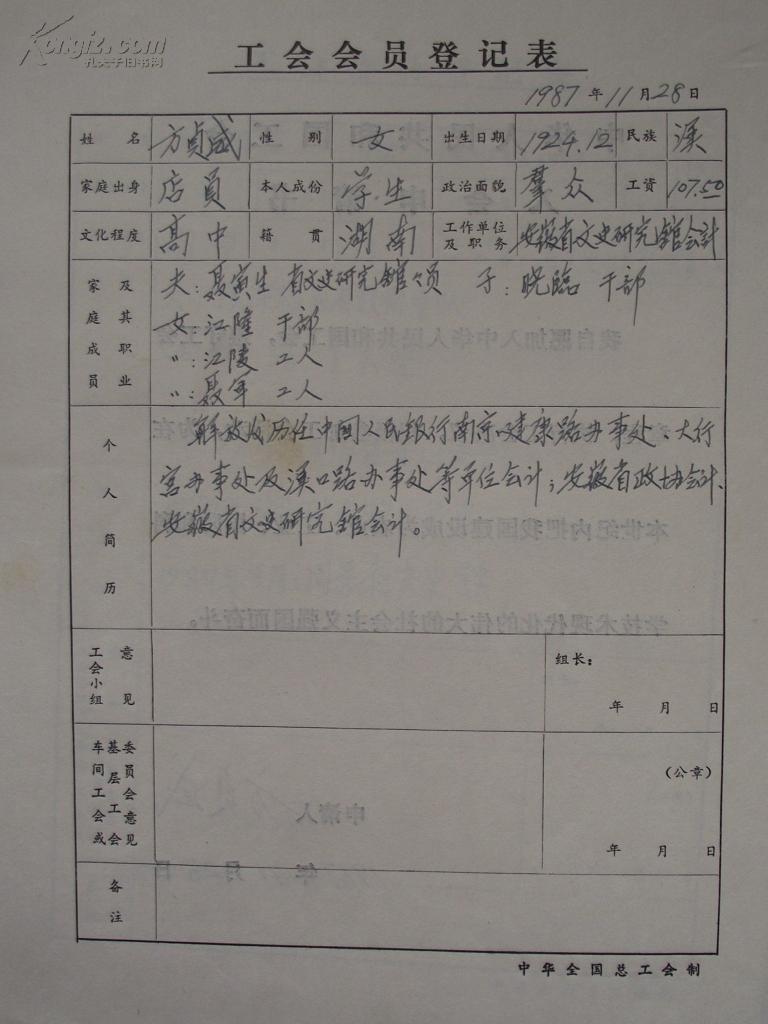 Kongfz.com
孔夫子旧书网
工会会员登记表
1987年11月28日
姓名 方贞咸 性别 女 出生日期 1924.12 民族 汉
家庭出身 店员 本人成份 学生 政治面貌 群众 工资 107.50
文化程度 高中 籍贯 湖南 工作单位及职务 安徽省文史研究馆会计
家庭成员及其职业
夫:聂寅生 省文史研究馆々员 子:晓临 干部
女:江隆 干部
〃:江陵 工人
〃:聂军 工人
个人简历
解放后历任中国人民银行南京健康路办事处、大行
宫办事处及汉口路办事处等单位会计;安徽省政协会计、
安徽省文史研究馆会计。
工会小组意见
组长:
年 月 日
车间工会或基层工会委员会意见
(公章)
年 月 日
备注
中华全国总工会制